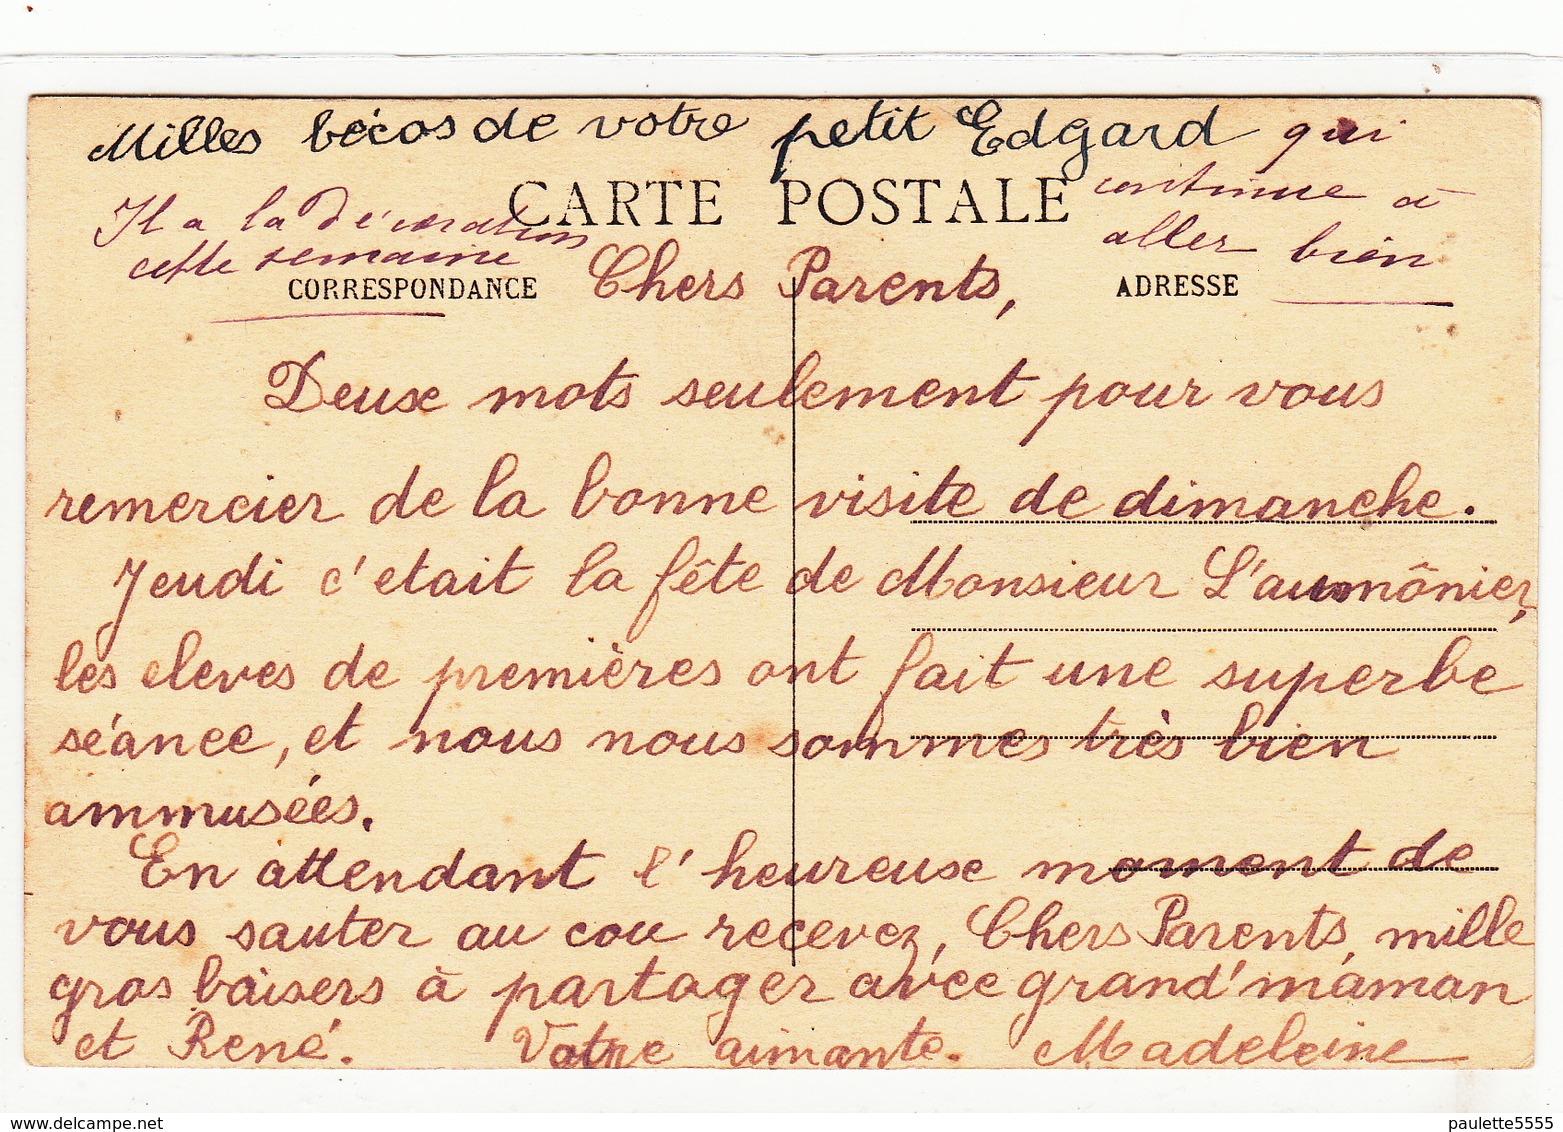 Milles bécos de votre petit Edgard qui
continue à
aller bien
Il a la décoration
cette semaine
CARTE POSTALE
CORRESPONDANCE
ADRESSE
Chers Parents,
Deuse mots seulement pour vous
remercier de la bonne visite de dimanche.
Jeudi c'etait la fête de Monsieur L'aumônier,
les eleves de premières ont fait une superbe
séance, et nous nous sommes très bien
ammusées.
En attendant l'heureuse moment de
vous sauter au cou recevez, Chers Parents, mille
gros baisers à partager avec grand'maman
et René. Votre aimante. Madeleine
delcampe.net
paulette5555